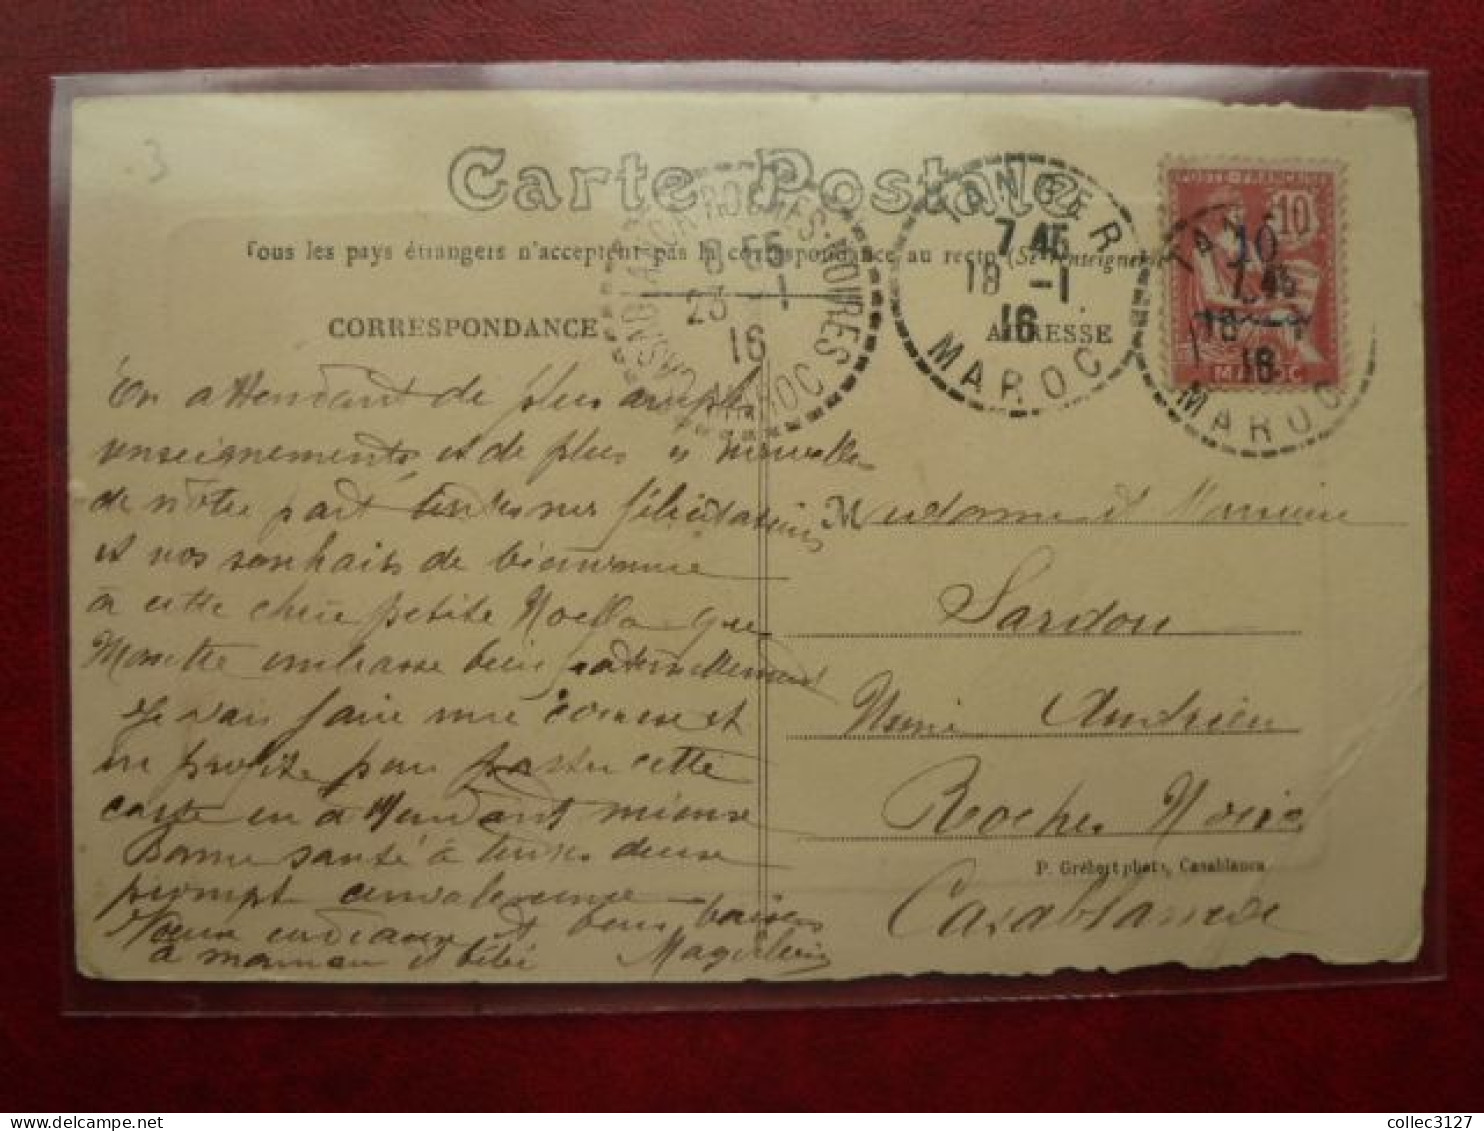 3
Carte Postale
Tous les pays étrangers n'acceptent pas la correspondance au recto (Se renseigner
CORRESPONDANCE
ADRESSE
CASABLANCA ROCHES-NOIRES
8 55
23 -1
16
MAROC
TANGER
7 45
18 -1
16
MAROC
POSTE FRANÇAISE
10
10
MAROC
TANGER
7 45
18 -1
16
MAROC
En attendant de plus amples
renseignements, et de plus nouvelles
de notre part tendres félicitations
et nos souhaits de bienvenue
à cette chère petite Noella que
embrasse bien maternellement
Je vais faire une course et
en profite pour poster cette
carte en attendant mieux
Bonne santé à tous deux
prompt convalescence
à maman et bébé
Madame et Monsieur
Sardou
Usine Andrieu
Roches Noires
Casablanca
P. Grébert phot., Casablanca
collec3127